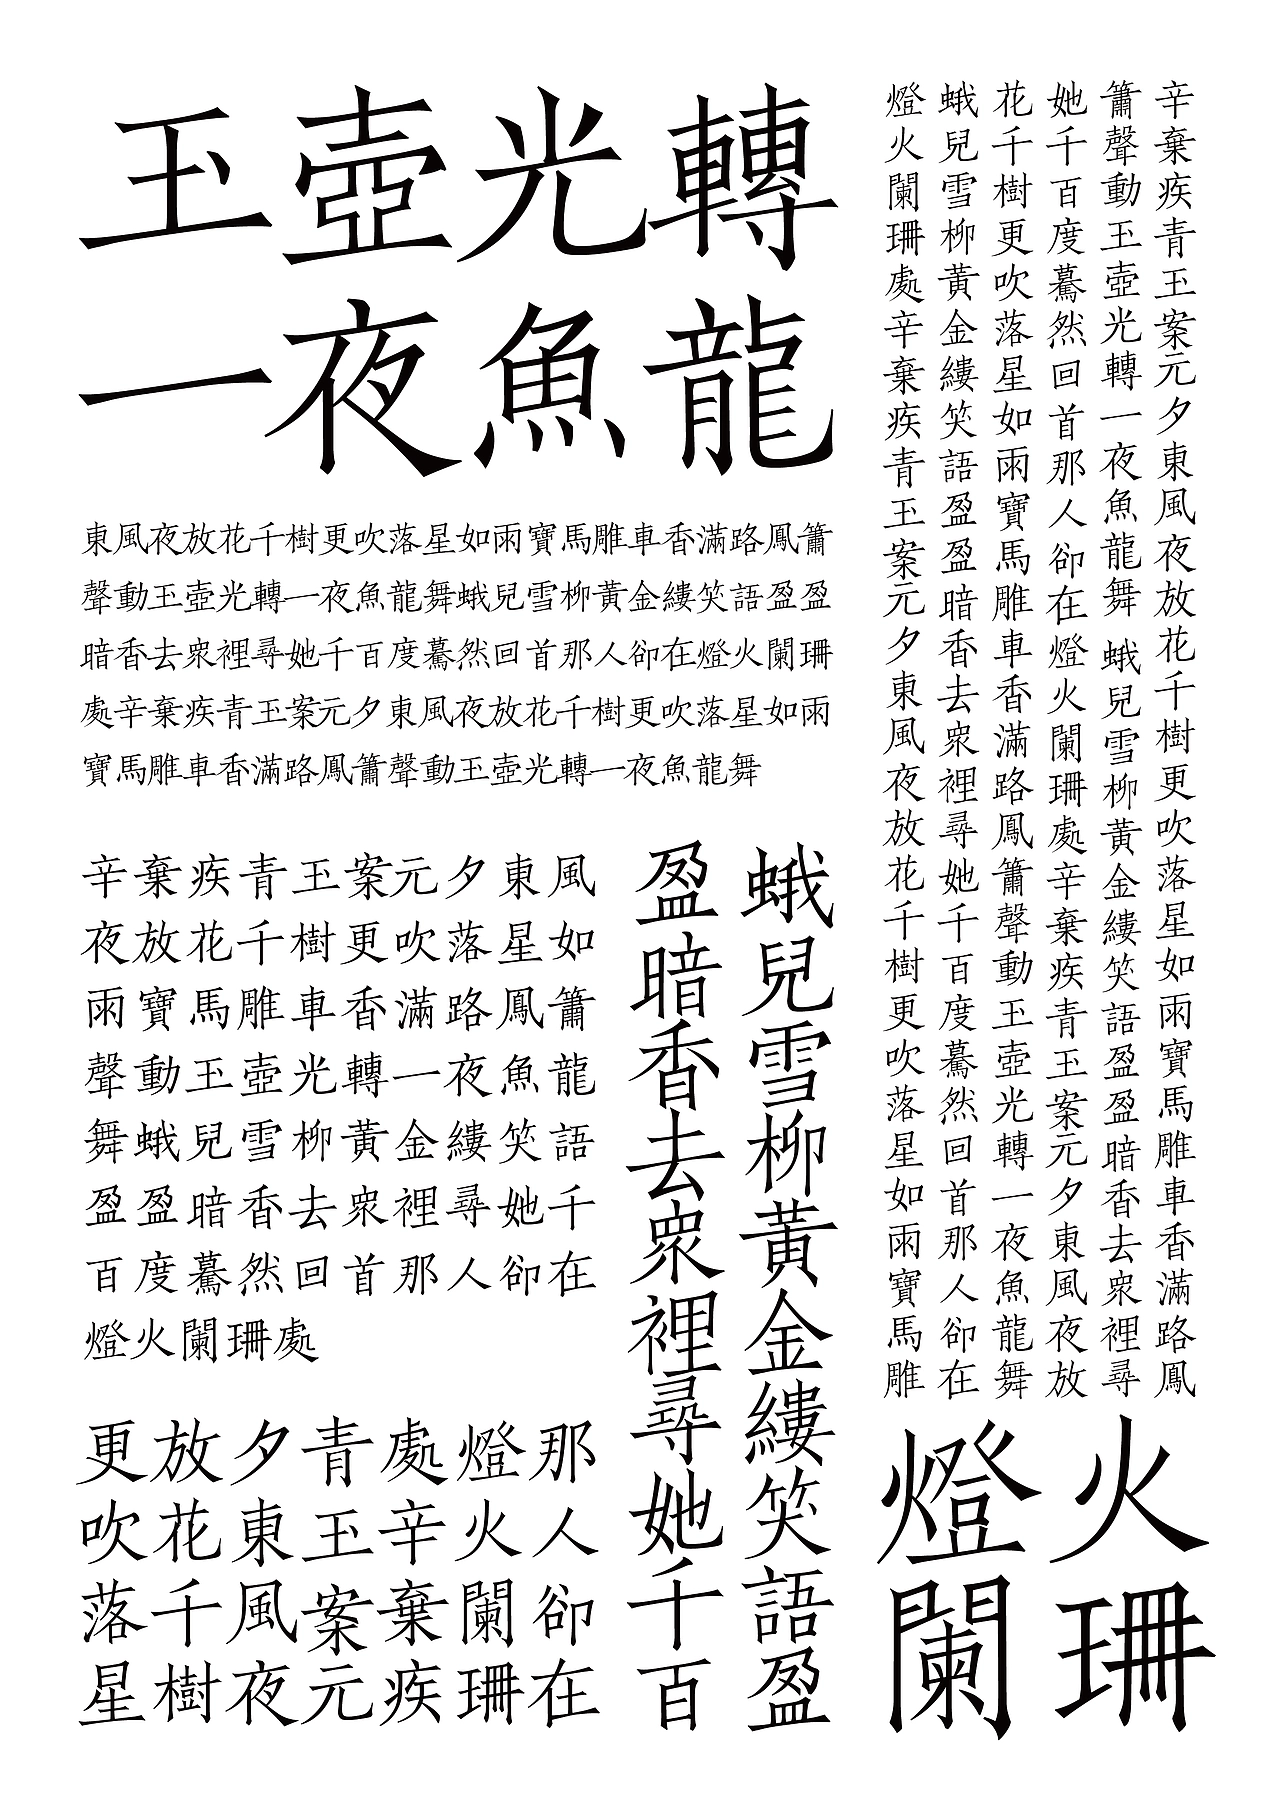 玉壺光轉
一夜魚龍
東風夜放花千樹更吹落星如雨寶馬雕車香滿路鳳簫
聲動玉壺光轉一夜魚龍舞蛾兒雪柳黃金縷笑語盈盈
暗香去眾裡尋她千百度驀然回首那人卻在燈火闌珊
處辛棄疾青玉案元夕東風夜放花千樹更吹落星如雨
寶馬雕車香滿路鳳簫聲動玉壺光轉一夜魚龍舞
辛棄疾青玉案元夕東風夜放花千樹更吹落星如雨寶馬雕車香滿路鳳
簫聲動玉壺光轉一夜魚龍舞蛾兒雪柳黃金縷笑語盈盈暗香去眾裡尋
她千百度驀然回首那人卻在燈火闌珊處辛棄疾青玉案元夕東風夜放
花千樹更吹落星如雨寶馬雕車香滿路鳳簫聲動玉壺光轉一夜魚龍舞
蛾兒雪柳黃金縷笑語盈盈暗香去眾裡尋她千百度驀然回首那人卻在
燈火闌珊處辛棄疾青玉案元夕東風夜放花千樹更吹落星如雨寶馬雕
辛棄疾青玉案元夕東風
夜放花千樹更吹落星如
雨寶馬雕車香滿路鳳簫
聲動玉壺光轉一夜魚龍
舞蛾兒雪柳黃金縷笑語
盈盈暗香去眾裡尋她千
百度驀然回首那人卻在
燈火闌珊處
蛾兒雪柳黃金縷笑語盈
盈暗香去眾裡尋她千百
那人卻在
燈火闌珊
處辛棄疾
青玉案元
夕東風夜
放花千樹
更吹落星
燈火
闌珊